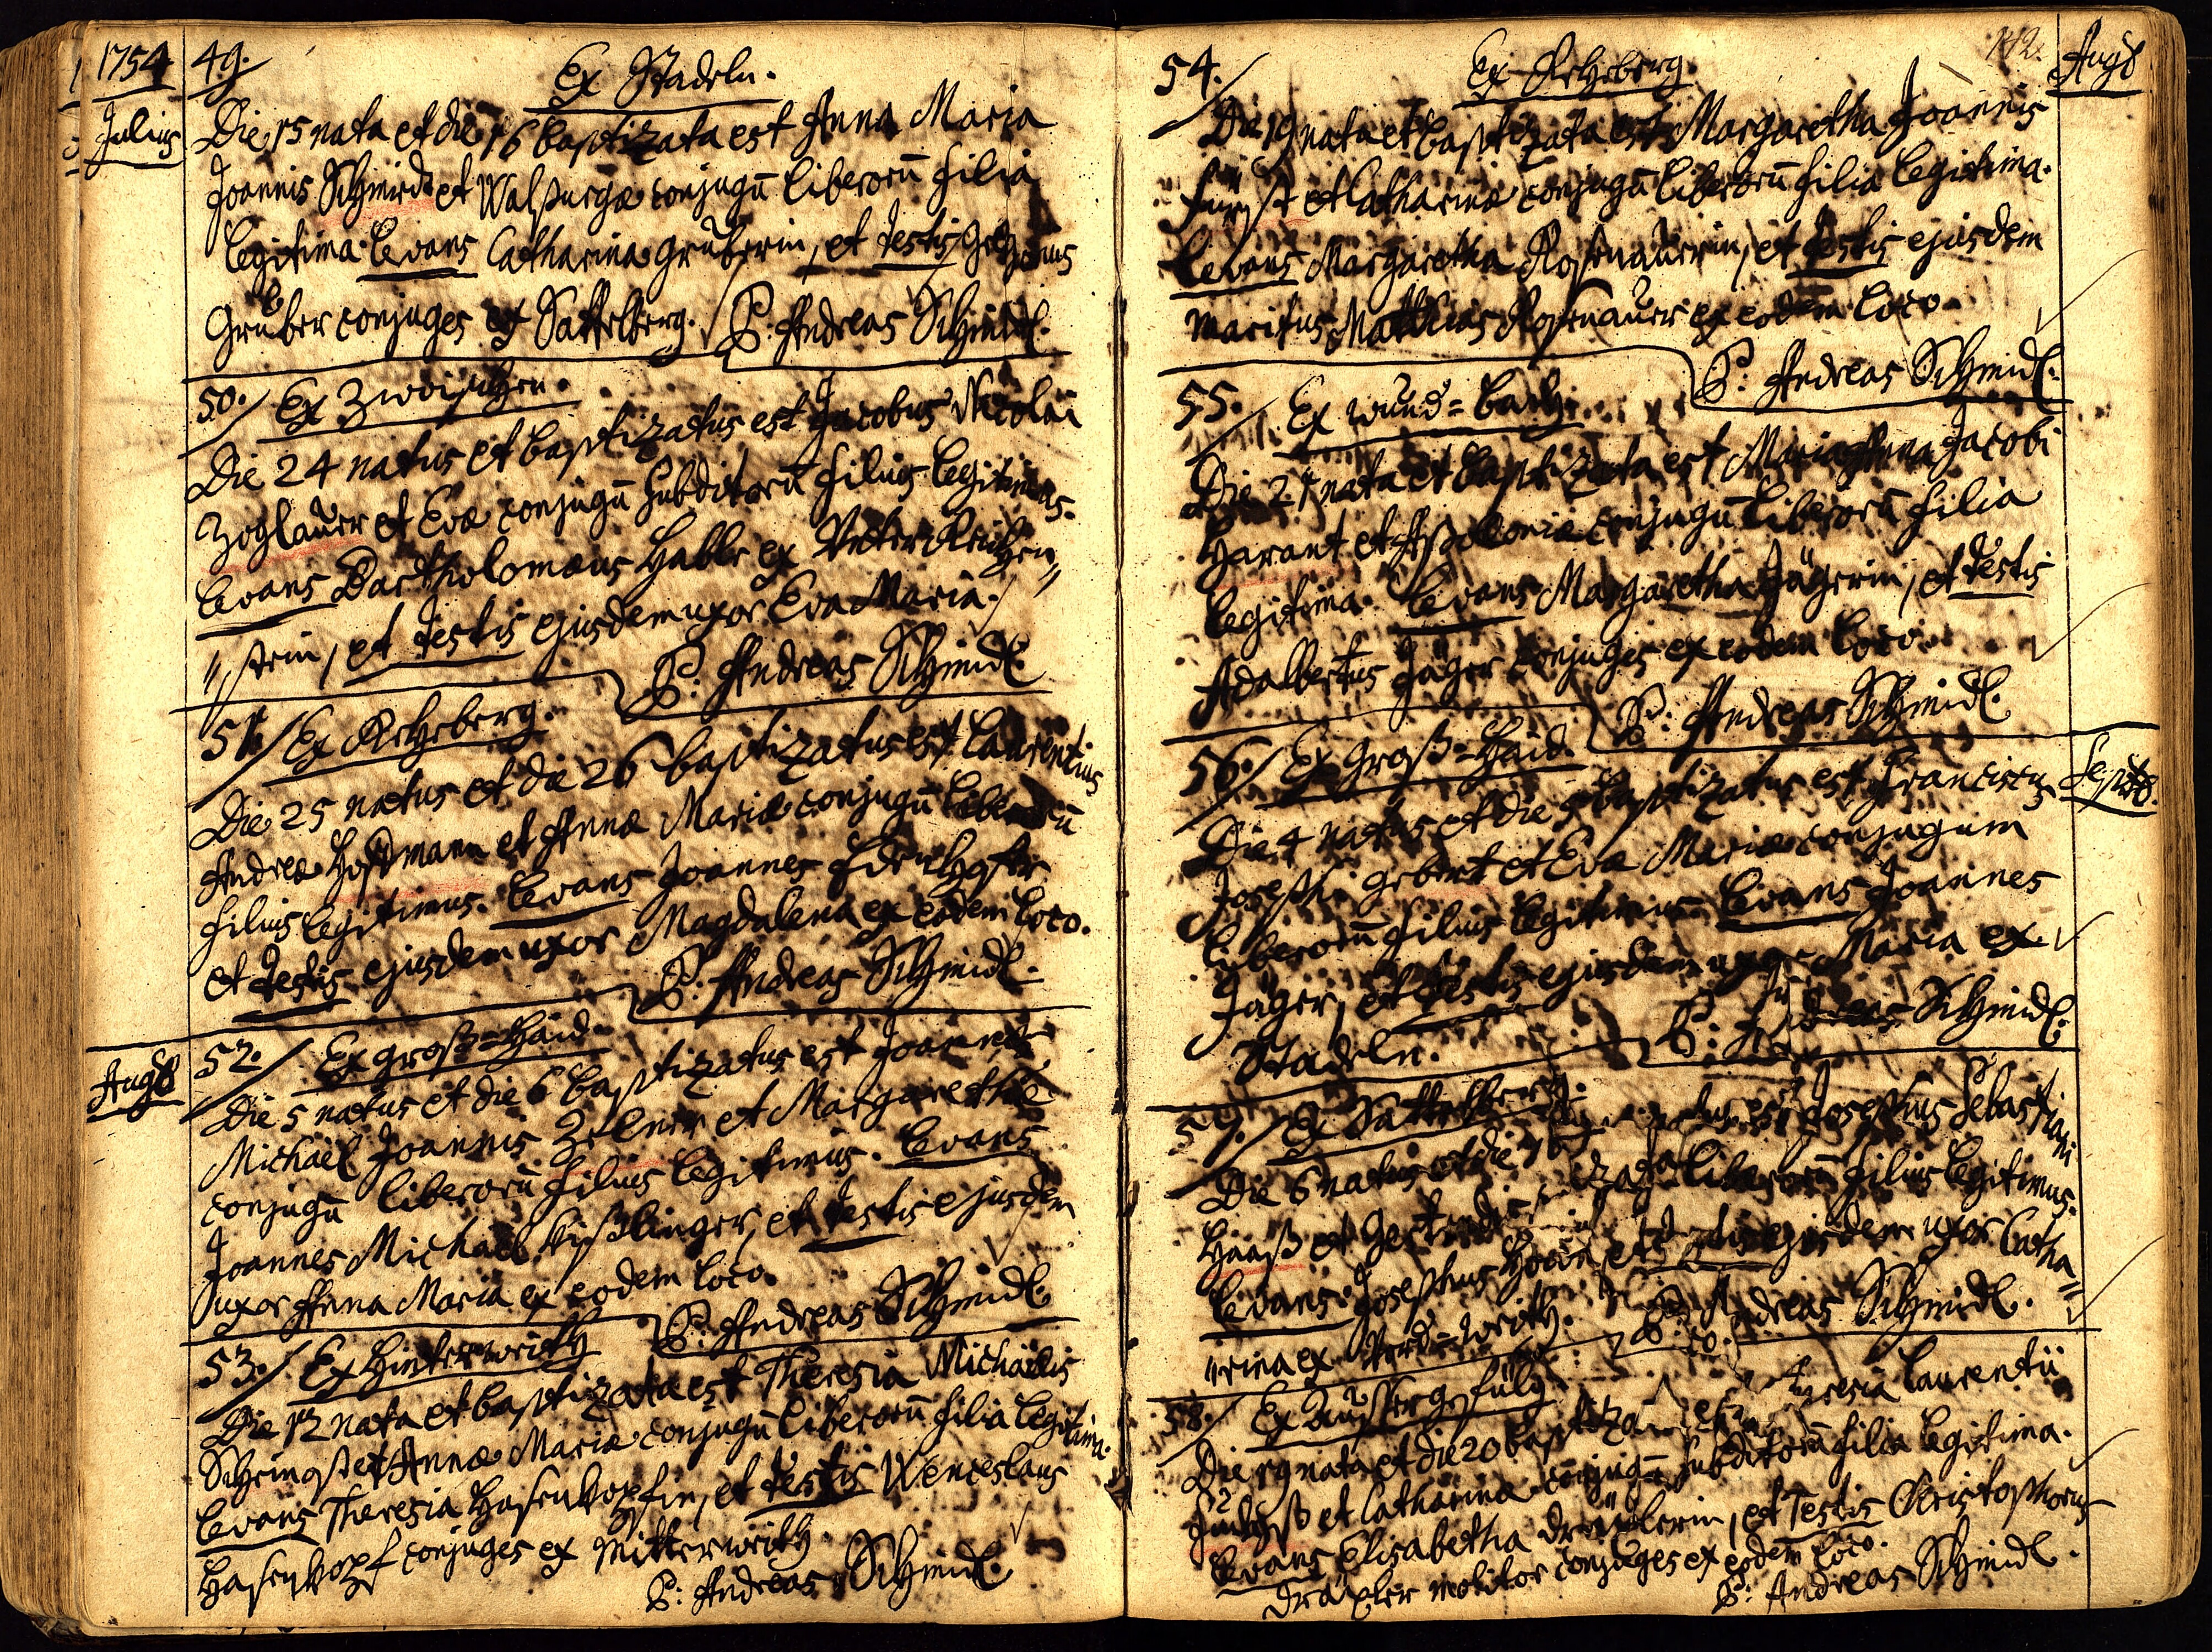 1754
Julius
49.
Ex Stadeln.
Die 15 nata et die 16 baptizata est Anna Maria
Joannis Schmidt et Walpurgæ conjugū liberorū filia
legitima. Levans Catharina Gruberin, et testis
Gruber conjuges ex Sattelberg. P: Andreas Schmidl.
50. Ex Zwoischen.
Die 24 natus et baptizatus est Jacobus Nicolai
Zoglauer et Evæ conjugū subditorū filius legitimus.
Levans Bartholomæus Hable ex Unter Reichen=
=stein, et testis ejusdem uxor Eva Maria.
P: Andreas Schmidl
51. Ex Rehberg.
Die 25 natus et die 26 baptizatus est Laurentius
Andreæ Hoffmann et Annæ Mariæ conjugū liberorū
filius legitimus. Levans Joannes
et testis ejusdem uxor Magdalena ex eodem loco.
P: Andreas Schmidl.
Aug9
52. Ex Groß=Haid.
Die 5 natus et die 6 baptizatus est Joannes
Michaël Joannis Zelner et Margarethæ
conjugū liberorū filius legitimus. Levans
Joannes Michaël Kißlinger, et testis ejusdem
uxor Anna Maria ex eodem loco.
P: Andreas Schmidl.
53. Ex Hinterwaith
Die 12 nata et baptizata est Theresia Michaëlis
et Annæ Mariæ conjugū liberorū filia legitima.
Levans Theresia Hasenkopfin, et testis Wenceslaus
Hasenkopf conjuges ex Mitterwaith.
P: Andreas Schmidl.
142.
Aug9
54. Ex Rehberg.
Die 19 nata et baptizata est Margaretha Joannis
Fürst et Catharinæ conjugū liberorū filia legitima.
Levans Margaretha Rosenauerin, et testis ejusdem
maritus Matthias Rosenauer ex eodem loco.
P: Andreas Schmidl.
55. Ex Wund=bach.
Die 21 nata et baptizata est Maria Anna Jacobi
Harant et Apoloniæ conjugū liberorū filia
legitima. Levans Margaretha Jägerin, et testis
Adalbertus Jäger conjuges ex eodem loco.
P: Andreas Schmidl.
Sept
56. Ex Groß=Haid.
Die 4 natus et die 5 baptizatus est Franciscus
Josephi Gebert et Evæ Mariæ conjugum
liberorū filius legitimus. Levans Joannes
Jäger, et testis ejusdem uxor Maria ex
Stadeln. P: Andreas Schmidl.
57. Ex Sattelberg.
Die 6 natus et die 7 baptizatus est Josephus Sebastiani
Haas et Gertrudis conjugū liberorū filius legitimus.
Levans Josephus et testis ejusdem uxor Catha=
=rina ex Vord=Waith. P: Andreas Schmidl.
58. Ex
Die 19 nata et die 20 baptizata est Theresia Laurentii
et Catharinæ conjugū subditorū filia legitima.
Levans Elisabetha Dräxlerin, et testis Christophorus
Dräxler molitor conjuges ex eodem loco.
P: Andreas Schmidl.